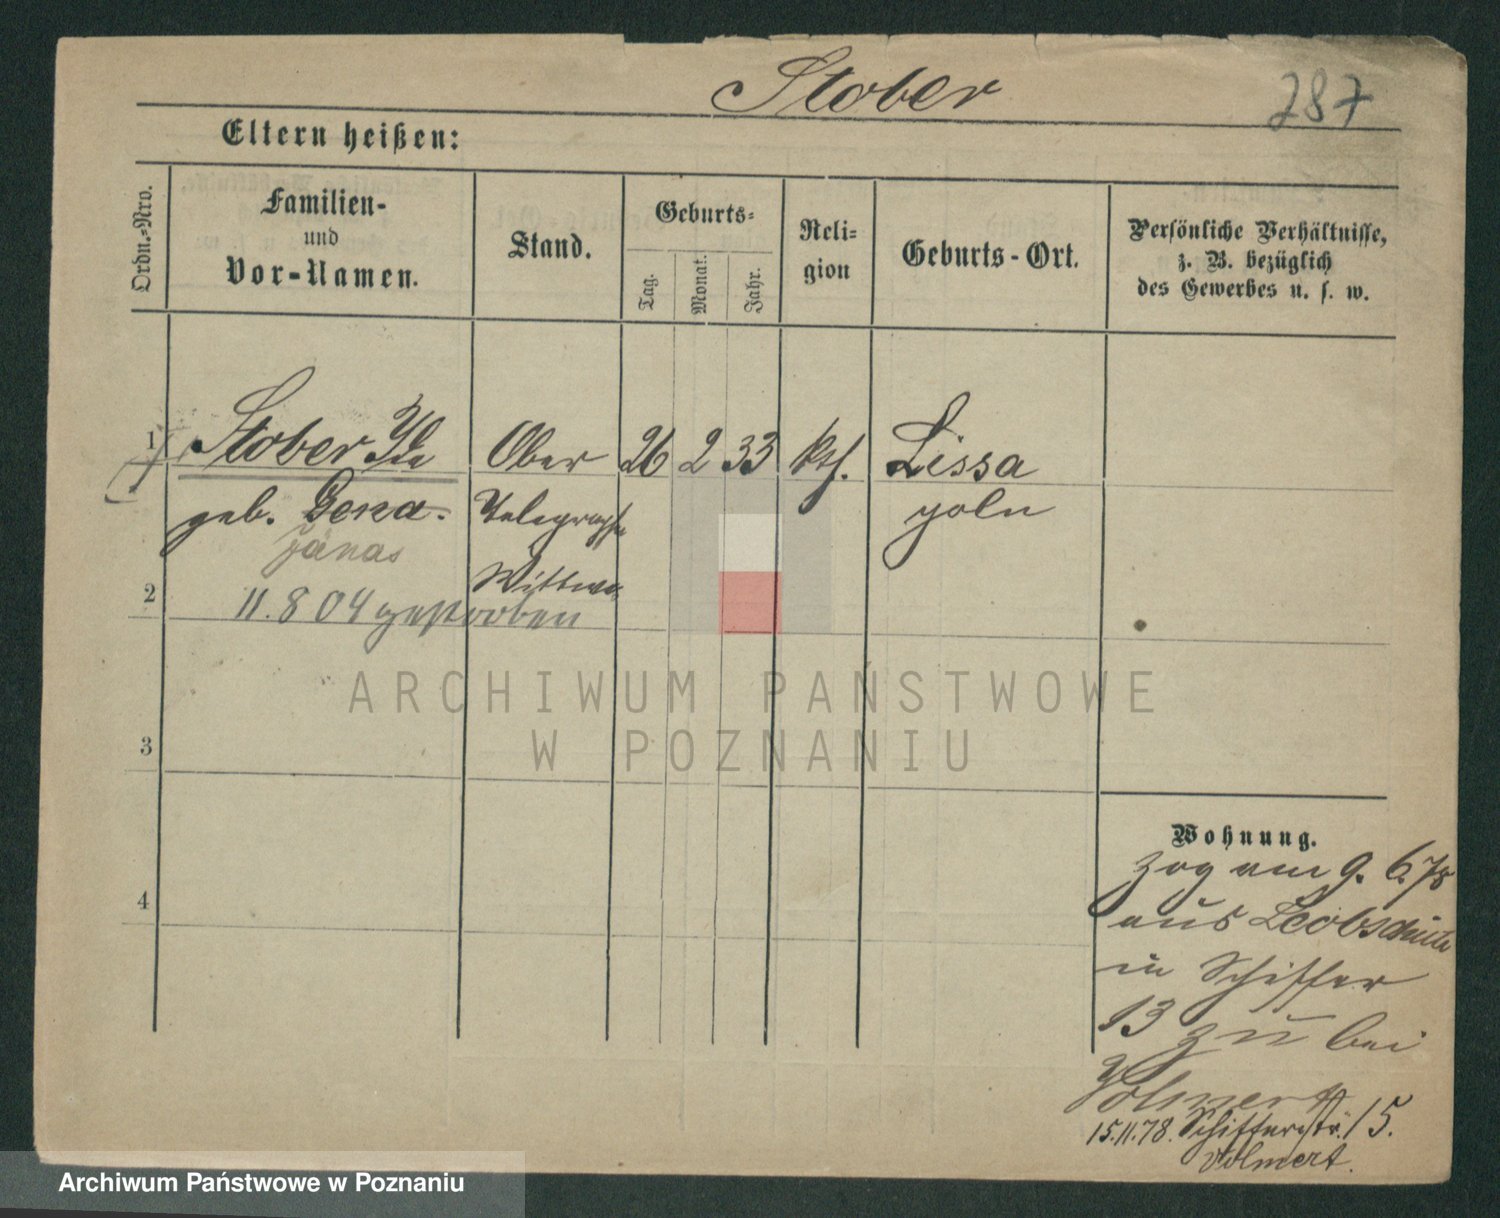 Stober
287
Eltern heißen:
Ordn.-Nro.
Familien-
und
Vor-Namen.
Stand.
Geburts-
Tag.
Monat.
Jahr.
Reli-
gion
Geburts-Ort.
Persönliche Verhältnisse,
z. B. bezüglich
des Gewerbes u. s. w.
1 Stober Ida Ober 26 2 33 kth. Lissa
geb. Gena. Telegraph
Janas
Wittwe
2
11.8 04 gestorben
3
4
Wohnung.
zog am 9. 6. 78
aus Leobschütz
in Schiffer
13 zu bei
Volmert
15.11.78. Schifferstr. 15.
Volmert.
ARCHIWUM PAŃSTWOWE
W POZNANIU
Archiwum Państwowe w Poznaniu